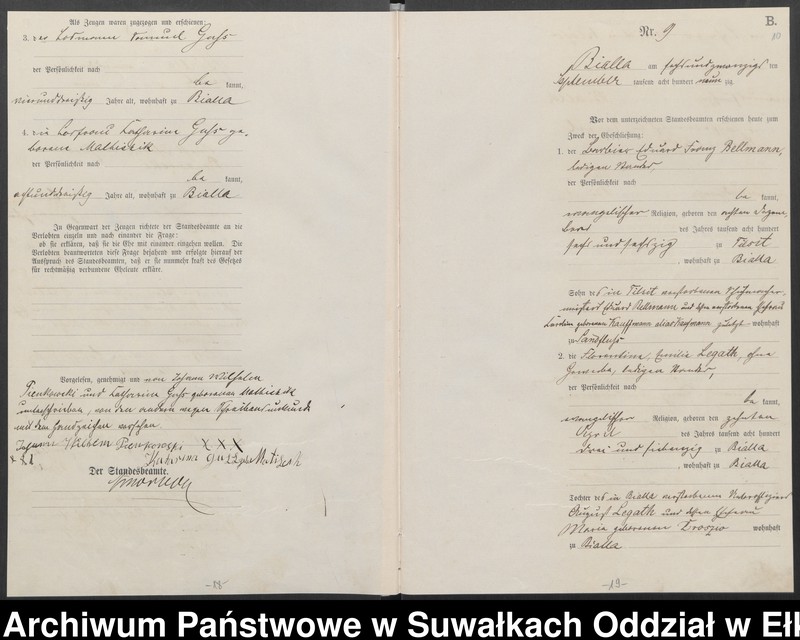 Als Zeugen waren zugezogen und erschienen:
3. der Losmann Samuel Gahs
der Persönlichkeit nach
be kannt,
vierunddreißig Jahre alt, wohnhaft zu Bialla
4. die Losfrau Catharina Gahs ge-
borene
der Persönlichkeit nach
be kannt,
achtunddreißig Jahre alt, wohnhaft zu Bialla
In Gegenwart der Zeugen richtete der Standesbeamte an die
Verlobten einzeln und nach einander die Frage:
ob sie erklären, daß sie die Ehe mit einander eingehen wollen. Die
Verlobten beantworteten diese Frage bejahend und erfolgte hierauf der
Ausspruch des Standesbeamten, daß er sie nunmehr kraft des Gesetzes
für rechtmäßig verbundene Eheleute erkläre.
Vorgelesen, genehmigt und von Johann Wilhelm
und Catharina Gahs geborenen
unterschrieben, von den andern wegen Schreibensunkunde
mit dem Handzeichen versehen.
Johann Wilhelm XXX
Katarina
Der Standesbeamte.
-18-
B.
Nr. 9
10
Bialla am sechsundzwanzigs ten
September tausend acht hundert neun zig
Vor dem unterzeichneten Standesbeamten erschienen heute zum
Zweck der Eheschließung:
1. der Barbier Eduard Franz Bellmann,
ledigen Standes,
der Persönlichkeit nach
be kannt,
evangelischer Religion, geboren den achten Dezem-
ber des Jahres tausend acht hundert
sechs und sechszig zu Tilsit
, wohnhaft zu Bialla
Sohn des in Tilsit verstorbenen Schuhmacher-
meister Eduard Bellmann und dessen verstorbenen Ehefrau
geborenen Kauffmann alias Kaufmann zuletzt wohnhaft
zu
2. die Florentine, Emilie Legath, ohne
Gewerbe, ledigen Standes,
der Persönlichkeit nach
be kannt,
evangelischer Religion, geboren den zehnten
April des Jahres tausend acht hundert
drei und siebenzig zu Bialla
, wohnhaft zu Bialla
Tochter des in Bialla verstorbenen
August Legath und dessen Ehefrau
Maria geborenen wohnhaft
zu Bialla
-19-
Archiwum Państwowe w Suwałkach Oddział w Eł